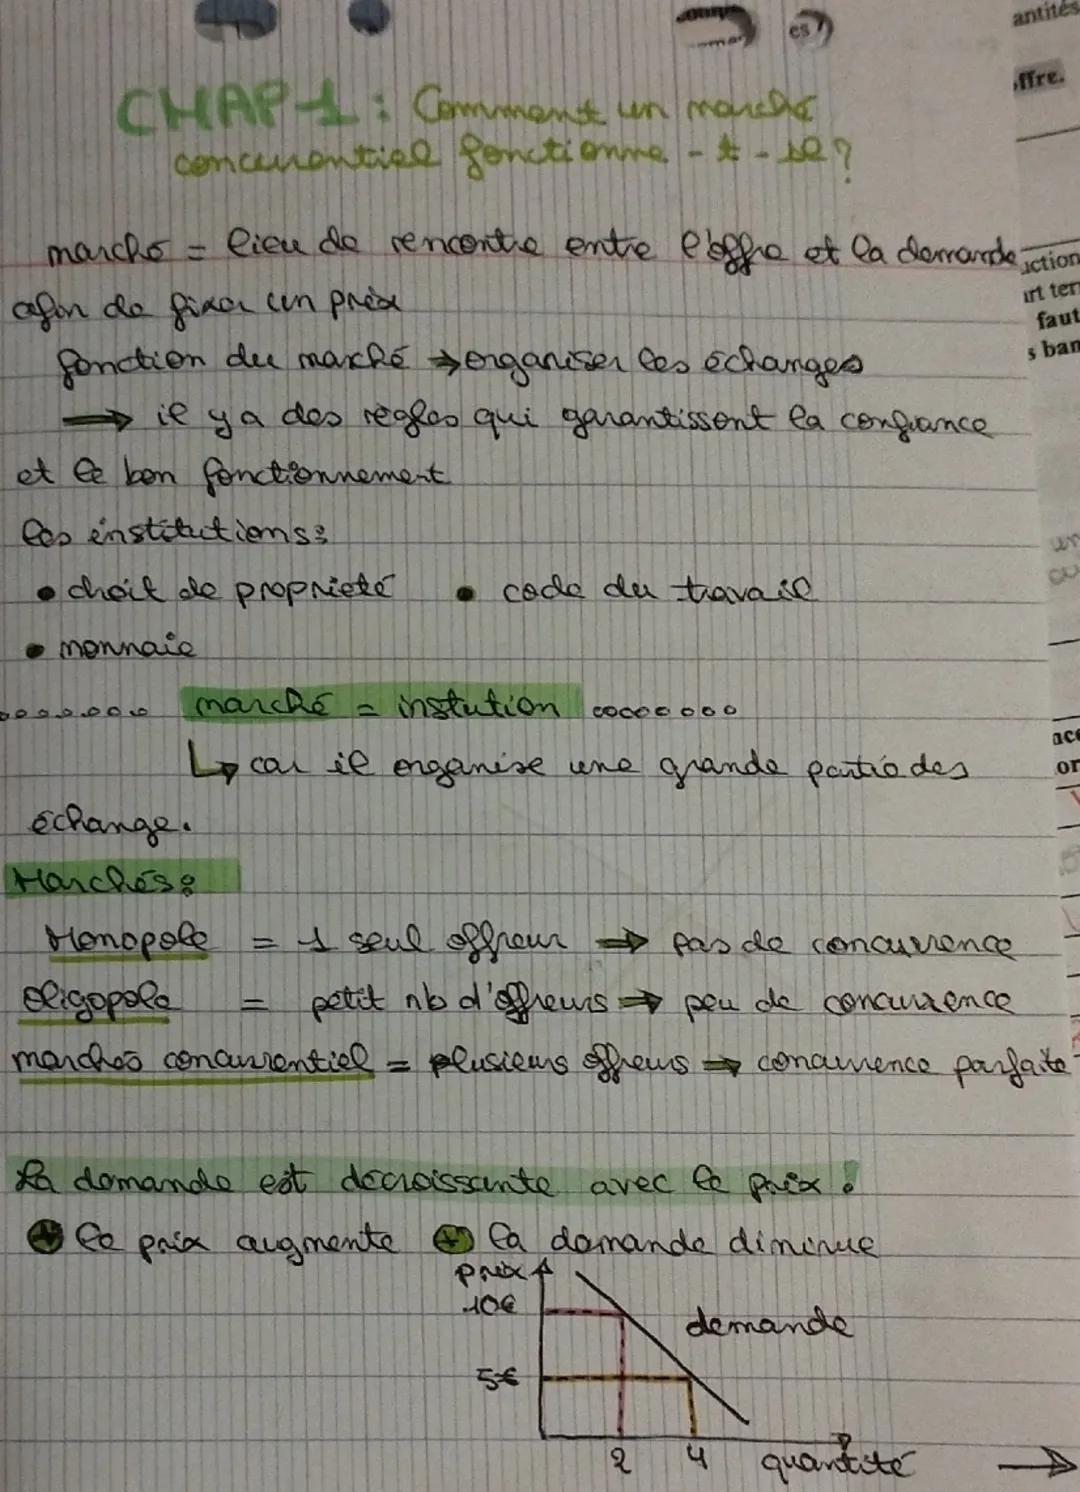 antités
offre.
CHAP 1 : Comment un marché
concurentiel fonctionne - t - il ?
marché = lieu de rencontre entre l'offre et la demande
afin de fixer un prix
uction
urt ter
faut
s ban
fonction du marché → organiser les échanges
→ il y a des règles qui garantissent la confiance
et le bon fonctionnement
les institutions :
• droit de propriété • code du travail
• monnaie
marché = instution
↳ car il organise une grande partie des
échange.
ace
or
Marchés :
Monopole = 1 seul offreur → pas de concurrence
Oligopole = petit nb d'offreurs → peu de concurrence
marchés concurrentiel = plusieurs offreurs → concurrence parfaite
La demande est décroissante avec le prix :
+ le prix augmente + la demande diminue
prix
10€
demande
5€
2 4 quantité →